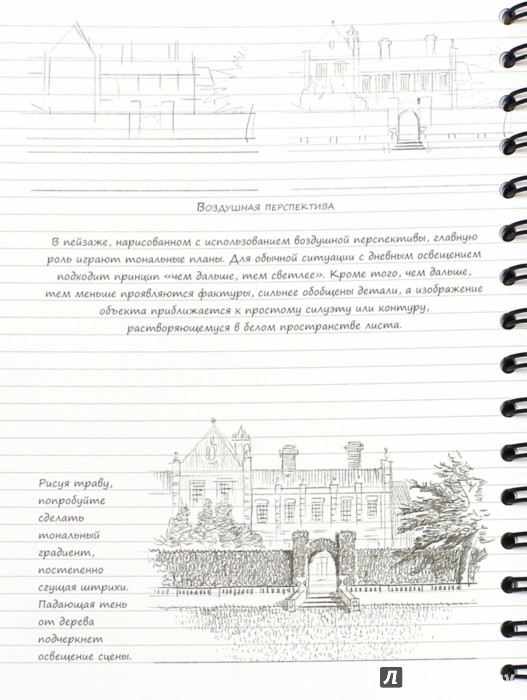 Воздушная перспектива
В пейзаже, нарисованном с использованием воздушной перспективы, главную
роль играют тональные планы. Для обычной ситуации с дневным освещением
подходит принцип «чем дальше, тем светлее». Кроме того, чем дальше,
тем меньше проявляются фактуры, сильнее обобщены детали, а изображение
объекта приближается к простому силуэту или контуру,
растворяющемуся в белом пространстве листа.
Рисуя траву,
попробуйте
сделать
тональный
градиент,
постепенно
сгущая штрихи.
Падающая тень
от дерева
подчеркнет
освещение сцены.
Л